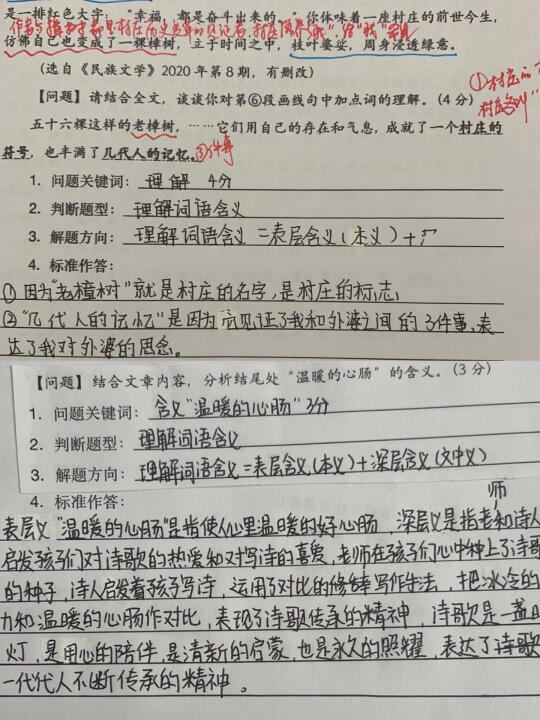 是一排红色大字:“幸福,都是奋斗出来的。”你体味着一座村庄的前世今生,
仿佛自己也变成了一棵樟树,立于时间之中,枝叶婆娑,周身浸透绿意。
(选自《民族文学》2020年第8期,有删改)
【问题】请结合全文,谈谈你对第⑥段画线句中加点词的理解。(4分)
①村庄的
村庄名叫“
五十六棵这样的老樟树,……它们用自己的存在和气息,成就了一个村庄的
符号,也丰满了几代人的记忆。③3件事
1. 问题关键词:理解 4分
2. 判断题型:理解词语含义
3. 解题方向:理解词语含义=表层含义(本义)+
4. 标准作答:
①因为“老樟树”就是村庄的名字,是村庄的标志,
②“几代人的记忆”是因为见证了我和外婆之间的3件事,表
达了我对外婆的思念。
【问题】结合文章内容,分析结尾处“温暖的心肠”的含义。(3分)
1. 问题关键词:含义“温暖的心肠”3分
2. 判断题型:理解词语含义
3. 解题方向:理解词语含义=表层含义(本义)+深层含义(文中义)
4. 标准作答:
表层义“温暖的心肠”是指使人心里温暖的好心肠,深层义是指老师和诗人
启发孩子们对诗歌的热爱和对写诗的喜爱,老师在孩子们心中种上了诗歌
的种子,诗人启发着孩子写诗,运用了对比的写作手法,把冰冷的
力和温暖的心肠作对比,表现了诗歌传承的精神,诗歌是一盏
灯,是用心的陪伴,是清新的启蒙,也是永久的照耀,表达了诗歌
一代代人不断传承的精神。